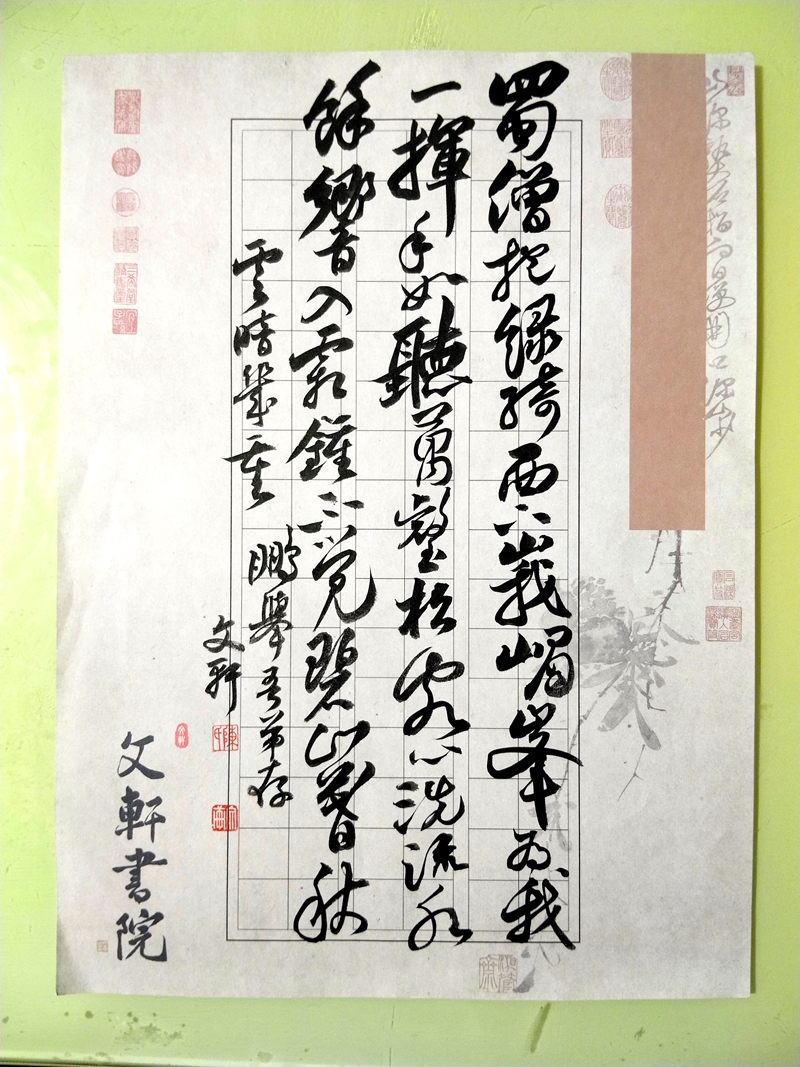 蜀僧抱綠綺西下峩嵋峯為我
一揮手如聽萬壑松客心洗流水
餘響入霜鐘不覺碧山暮秋
雲暗幾重
鵬舉吾弟存
文軒
文軒書院